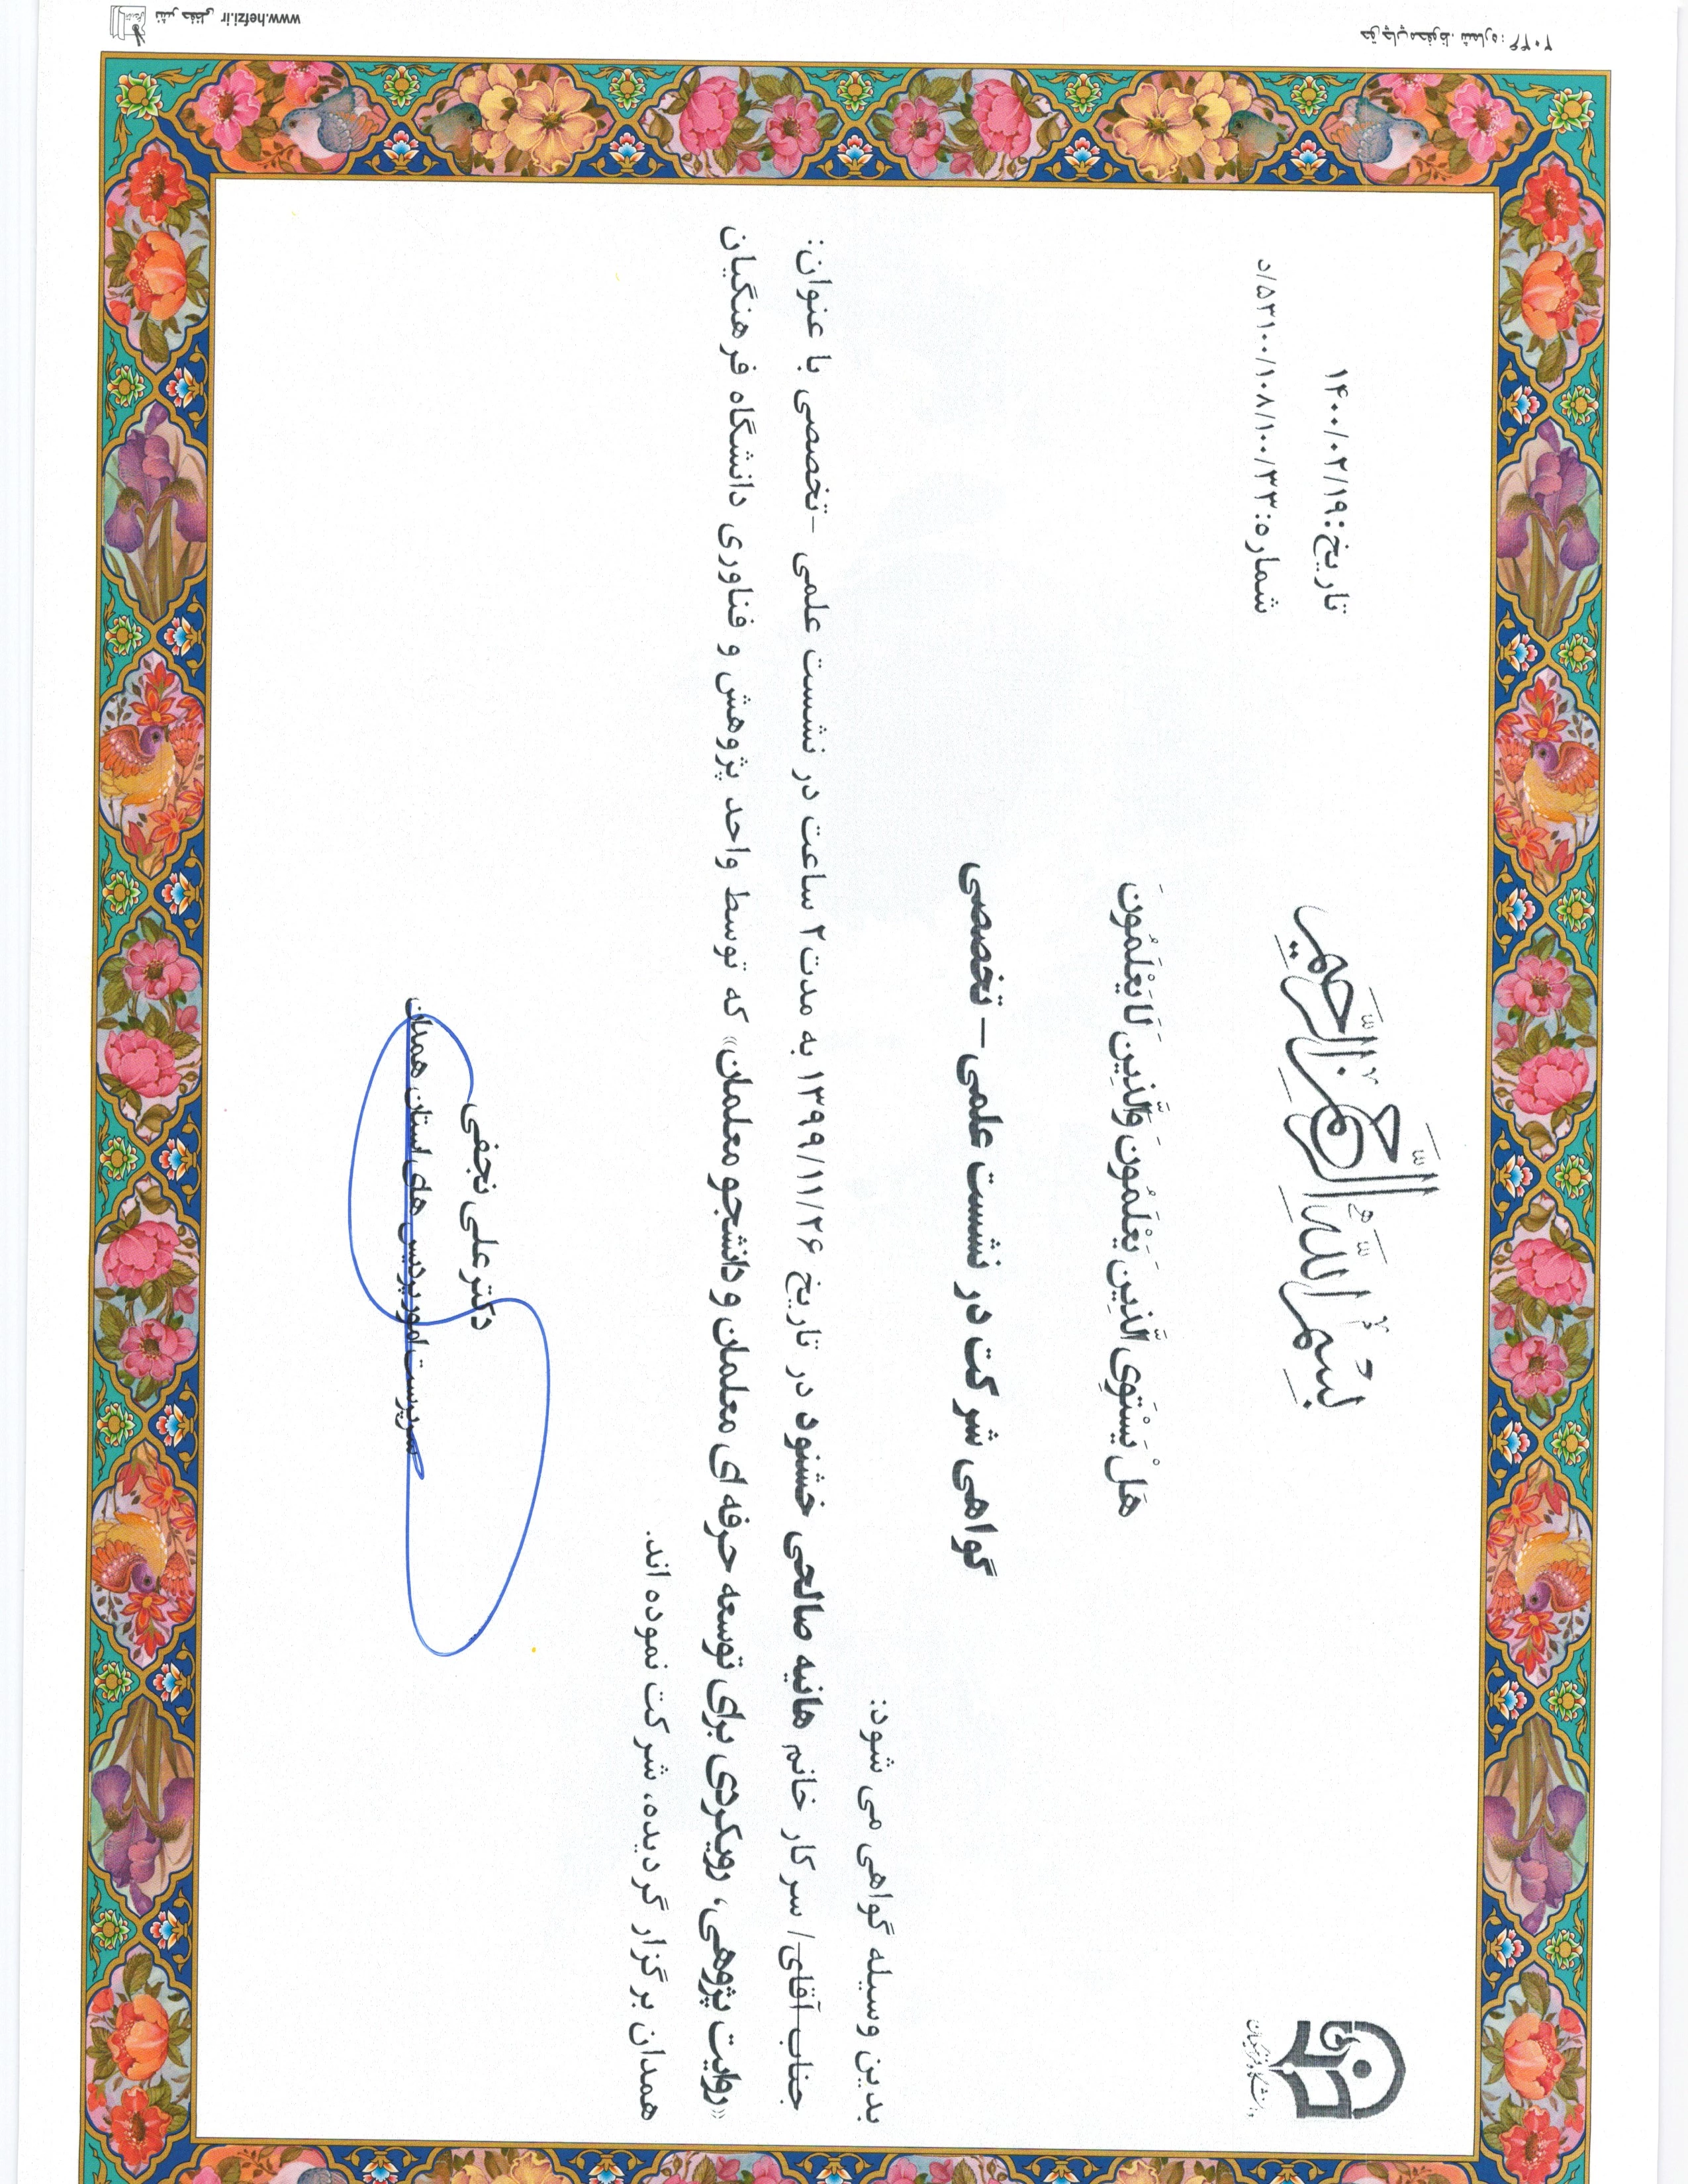 بِسْمِ اللَّهِ الرَّحْمَنِ الرَّحِيمِ
تاریخ: ۱۴۰۰/۰۲/۱۹
شماره: ۵۳۱۰۰/۱۰۸/۱۰۰/۳۳/د
دانشگاه فرهنگیان
هَلْ يَسْتَوِي الَّذِينَ يَعْلَمُونَ وَالَّذِينَ لَا يَعْلَمُونَ
گواهی شرکت در نشست علمی – تخصصی
بدین وسیله گواهی می شود:
جناب آقای/ سرکار خانم هانیه صالحی خشنود در تاریخ ۱۳۹۹/۱۱/۲۶ به مدت ۲ ساعت در نشست علمی -تخصصی با عنوان:
«روایت پژوهی، رویکردی برای توسعه حرفه ای معلمان و دانشجو معلمان» که توسط واحد پژوهش و فناوری دانشگاه فرهنگیان
همدان برگزار گردیده، شرکت نموده اند.
دکتر علی نجفی
سرپرست امور پردیس های استان همدان
حق چاپ محفوظ. شماره: ۲۰۴۴
نشر حفظی www.hefzi.ir